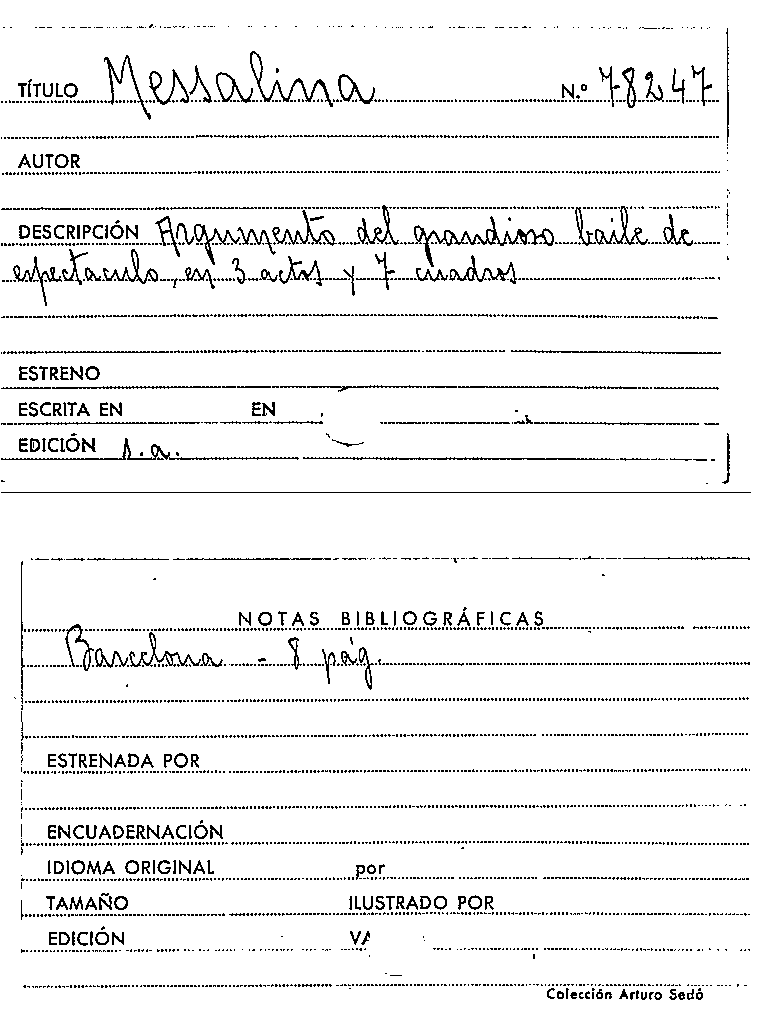 TÍTULO Messalina N.º 78247
AUTOR
DESCRIPCIÓN Argumento del grandioso baile de
espectaculo, en 3 actos y 7 cuadros
ESTRENO
ESCRITA EN EN
EDICIÓN s.a.
NOTAS BIBLIOGRÁFICAS
Barcelona - 8 pág.
ESTRENADA POR
ENCUADERNACIÓN
IDIOMA ORIGINAL por
TAMAÑO ILUSTRADO POR
EDICIÓN
Colección Arturo Sedó